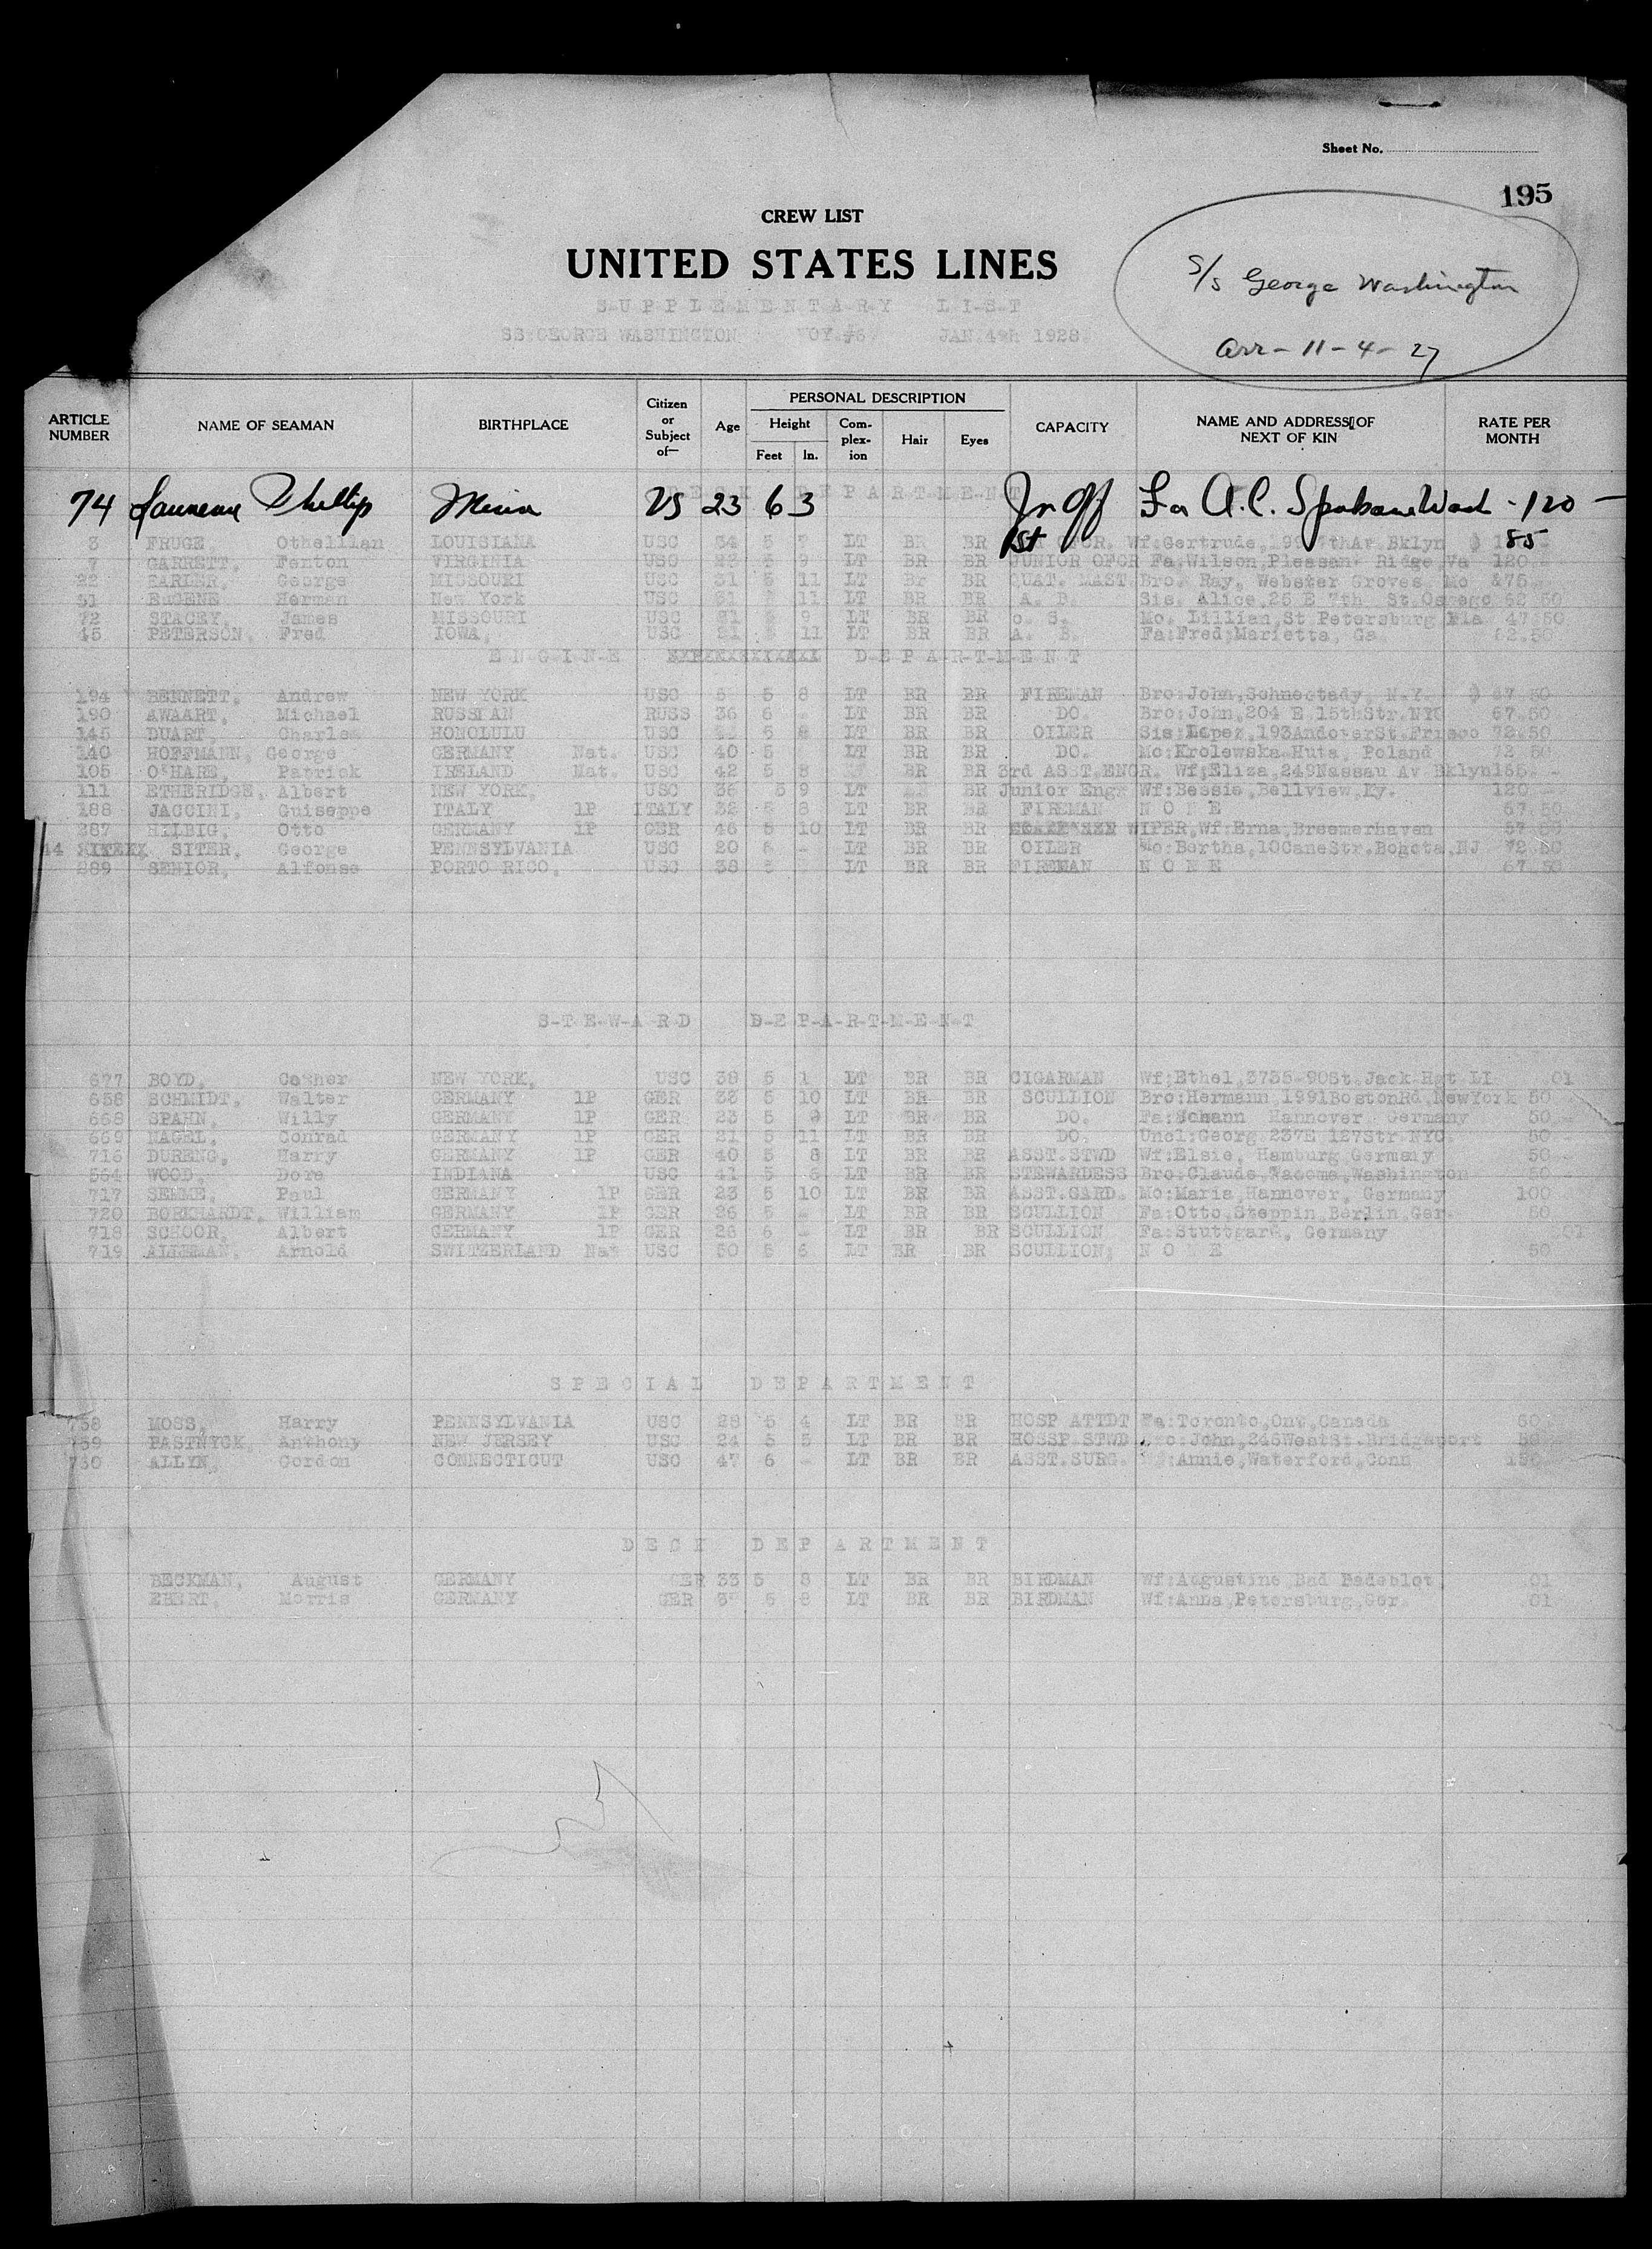 Sheet No.
195
CREW LIST
UNITED STATES LINES
S-U-P-P-L-E-M-E-N-T-A-R-Y L-I-S-T
SS GEORGE WASHINGTON VOY. JAN 4th 1928
S/S George Washington
Arr - 11 - 4 - 27
ARTICLE NUMBER NAME OF SEAMAN BIRTHPLACE Citizen or Subject of— Age PERSONAL DESCRIPTION Height Feet In. Com-plex-ion Hair Eyes CAPACITY NAME AND ADDRESS OF NEXT OF KIN RATE PER MONTH
D-E-C-K D-E-P-A-R-T-M-E-N-T
74 Phillip US 23 6 3 Jr Off Fa A.C. Spokane Wash - 120 —
3 FRUGE, Othellian LOUISIANA USC 34 5 LT BR BR 1st OFCR. Wf:Gertrude, Bklyn 85
7 GARRETT, Fenton VIRGINIA USC 5 9 LT BR BR JUNIOR OFCR Fa.Wilson,Pleasant Ridge,Va 120.-
22 George MISSOURI USC 31 5 11 LT Br BR QUAT. MAST Bro. Ray, Webster Groves Mo
51 EUGENE Herman New York USC 11 LT BR BR A. B. Sis. Alice,25 E 7th St.Oswego 62 50
72 STACEY, James MISSOURI USC 9 LT BR BR O. S. Mo. Lillian,St Petersburg Fla 47.50
45 PETERSON, Fred IOWA, USC 11 LT BR BR A. B. Fa:Fred;Marietta, Ga 62.50
E-N-G-I-N-E D-E-P-A-R-T-M-E-N-T
194 BENNETT, Andrew NEW YORK USC 5 8 LT BR BR FIREMAN Bro:John,Schnectady, N.Y. 67.50
190 AWAART, Michael RUSSIAN RUSS 36 6 - LT BR BR DO. Bro:John,204 E 15thStr.NYC 67.50
145 DUART, Charles HONOLULU USC 5 8 LT BR BR OILER Sis:Lopez,193AndoverSt.Frisco 72.50
140 HOFFMANN, George GERMANY Nat. USC 40 5 LT BR BR DO. Mo:Krolewska-Huta, Poland 72.50
105 O'HARE, Patrick IRELAND Nat. USC 42 5 BR BR 3rd ASST.ENGR. Wf;Eliza,249Nassau Av Bklyn155.-
111 ETHERIDGE, Albert NEW YORK, USC 36 5 9 LT BR Junior Engr Wf:Bessie,Bellview,Ky. 120.-
188 JACCINI, Guiseppe ITALY 1P ITALY 32 5 8 LT BR BR FIREMAN N O N E 67.50
287 HILBIG, Otto GERMANY 1P GER 46 5 10 LT BR BR WIPER,Wf:Erna,Breemerhaven 57.50
SITER, George PENNSYLVANIA USC 20 6 - LT BR BR OILER Mo:Bertha,10CaneStr.Bogota,NJ 72.50
289 SENIOR, Alfonse PORTO RICO, USC 38 5 LT BR BR FIREMAN N O N E 67.50
S-T-E-W-A-R-D D-E-P-A-R-T-M-E-N-T
677 BOYD, NEW YORK, USC 38 5 1 LT BR BR CIGARMAN Wf;Ethel,3735-90St.Jack Hgt LI .01
658 SCHMIDT, Walter GERMANY 1P GER 33 5 10 LT BR BR SCULLION Bro:Hermann,1991BostonRd,NewYork 50
668 SPAHN, Willy GERMANY 1P GER 23 5 LT BR BR DO. Fa:Johann Hannover Germany 50.-
669 NAGEL, Conrad GERMANY 1P GER 21 5 11 LT BR BR DO. Uncl:Georg.237E 127Str.NYC. 50.-
716 DURENG, Harry GERMANY 1P GER 40 5 8 LT BR BR ASST.STWD Wf:Elsie, Hamburg Germany 50.-
564 WOOD, Dora INDIANA USC 41 5 6 LT BR BR STEWARDESS Bro:Claude,Tacoma,Washington 50.-
717 SEMME, Paul GERMANY 1P GER 23 5 10 LT BR BR ASST.GARD. Mo:Maria,Hannover, Germany 100
720 BORKHARDT, William GERMANY 1P GER 26 5 - LT BR BR SCULLION Fa:Otto,Steppin,Berlin,Ger. 50
718 SCHOOR, Albert GERMANY 1P GER 26 6 - LT BR BR SCULLION Fa:Stuttgard, Germany .01
719 ALLEMAN, Arnold SWITZERLAND Nat USC 50 5 6 LT BR BR SCULLION, N O N E 50
S P E C I A L D E P A R T M E N T
758 MOSS, Harry PENNSYLVANIA USC 28 5 4 LT BR BR HOSP ATTDT Fa:Toronto,Ont,Canada 60
759 PASTNYCK, Anthony NEW JERSEY USC 24 5 5 LT BR BR HOSSP.STWD Bro:John,246WestSt.Bridgeport
760 ALLYN, Gordon CONNECTICUT USC 47 6 - LT BR BR ASST.SURG. Annie,Waterford,Conn 150
D E C K D E P A R T M E N T
BECKMAN, August GERMANY GER 33 5 8 LT BR BR BIRDMAN Wf:Augustine Bad .01
EBERT, Morris GERMANY GER 5 8 LT BR BR BIRDMAN Wf:Anna,Petersburg,Ger. .01